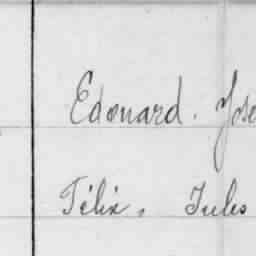 Edouard. Jose
Félix. Jules